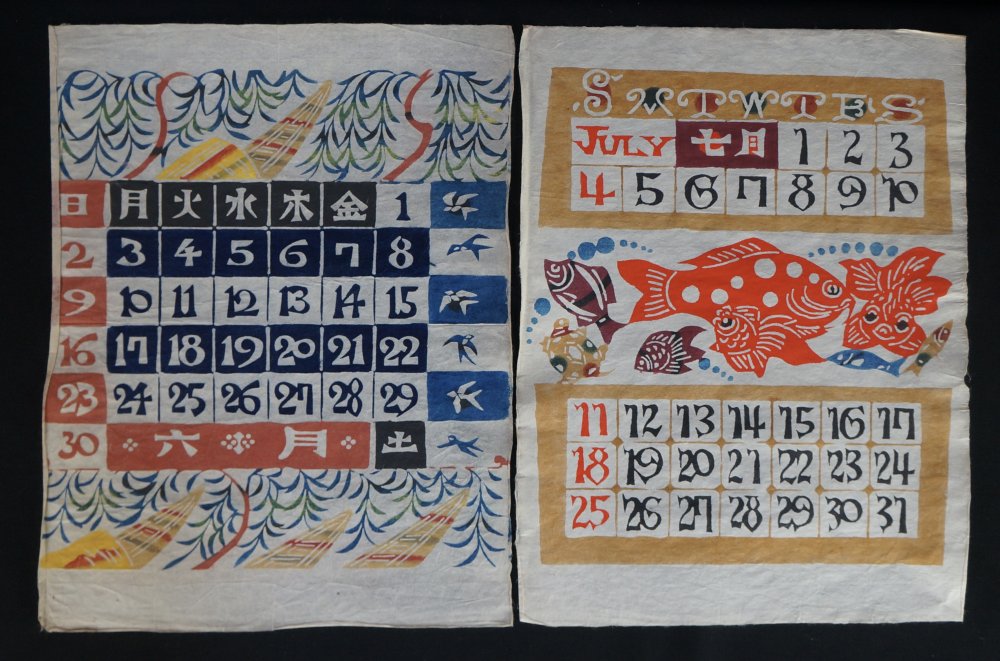 日 月 火 水 木 金 1
2 3 4 5 6 7 8
9 10 11 12 13 14 15
16 17 18 19 20 21 22
23 24 25 26 27 28 29
30 六 月 土
S M T W T F S
JULY 七月 1 2 3
4 5 6 7 8 9 10
11 12 13 14 15 16 17
18 19 20 21 22 23 24
25 26 27 28 29 30 31